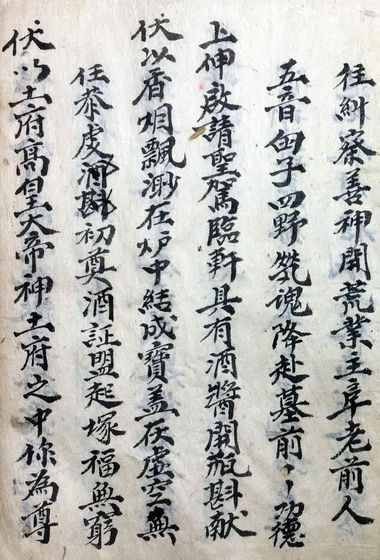 往糾察善神開荒業主阜老前人
五音白子四野𠒋魂降赴墓前〻功德
上伸啟請聖駕臨軒具有酒醬開瓶斟献
伏以香烟飄渺在炉中結成寶盖在虛空無
任恭虔酒斟初奠酒証盟起塚福無窮
伏以土府高皇大帝神土府之中你為尊